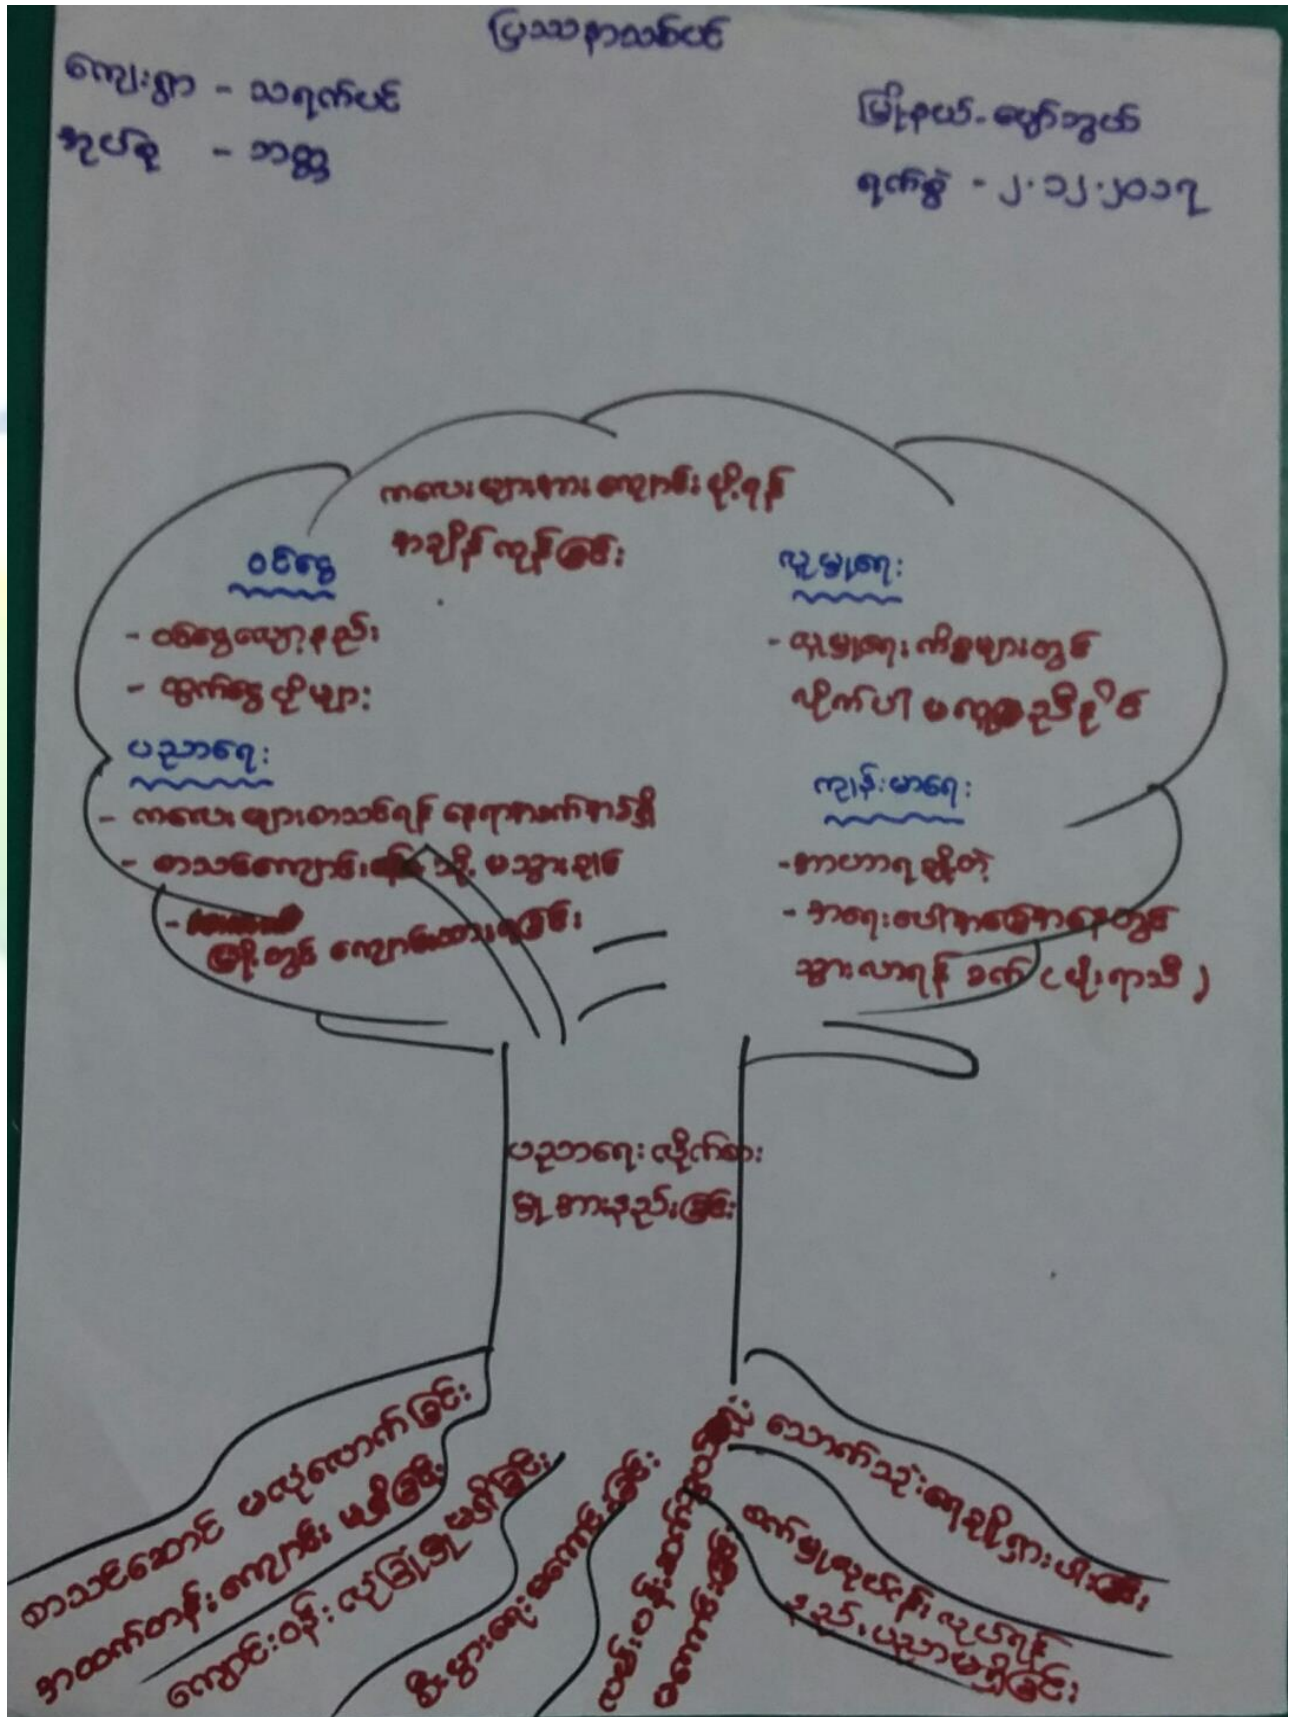 ပြဿနာသစ်ပင်
ကျေးရွာ - သရက်ပင်
အုပ်စု - ဘတ္တ
မြို့နယ် - ပျော်ဘွယ်
ရက်စွဲ - ၂.၁၂.၂၀၁၇
ကလေးများအား ကျောင်းပို့ရန်
အချိန်ကုန်ခြင်း
ဝင်ငွေ
- ဝင်ငွေလျော့နည်း
- ထွက်ငွေပိုများ
ပညာရေး
- ကလေးများစာသင်ရန် နေရာအခက်အခဲရှိ
- စာသင်ကျောင်း သို့ မသွားချင်
- မြို့တွင် ကျောင်းထားရခြင်း
လူမှုရေး
- လူမှုရေးကိစ္စများတွင်
လိုက်ပါ မကူညီနိုင်
ကျန်းမာရေး
- အာဟာရချို့တဲ့
- အရေးပေါ်အခြေအနေတွင်
သွားလာရန် ခက် (မိုးရာသီ)
ပညာရေး လိုက်စား
မှု အားနည်းခြင်း
စာသင်ဆောင် မလုံလောက်ခြင်း
အထက်တန်းကျောင်း မရှိခြင်း
ကျောင်းဝန်း လုံခြုံမှု မရှိခြင်း
စီးပွားရေး မကောင်းခြင်း
လမ်းပန်းဆက်သွယ်
မကောင်းခြင်း
သောက်သုံးရေရှားပါးခြင်း
စက်မှုလုပ်ငန်း လုပ်ရန်
နည်းပညာမရှိခြင်း